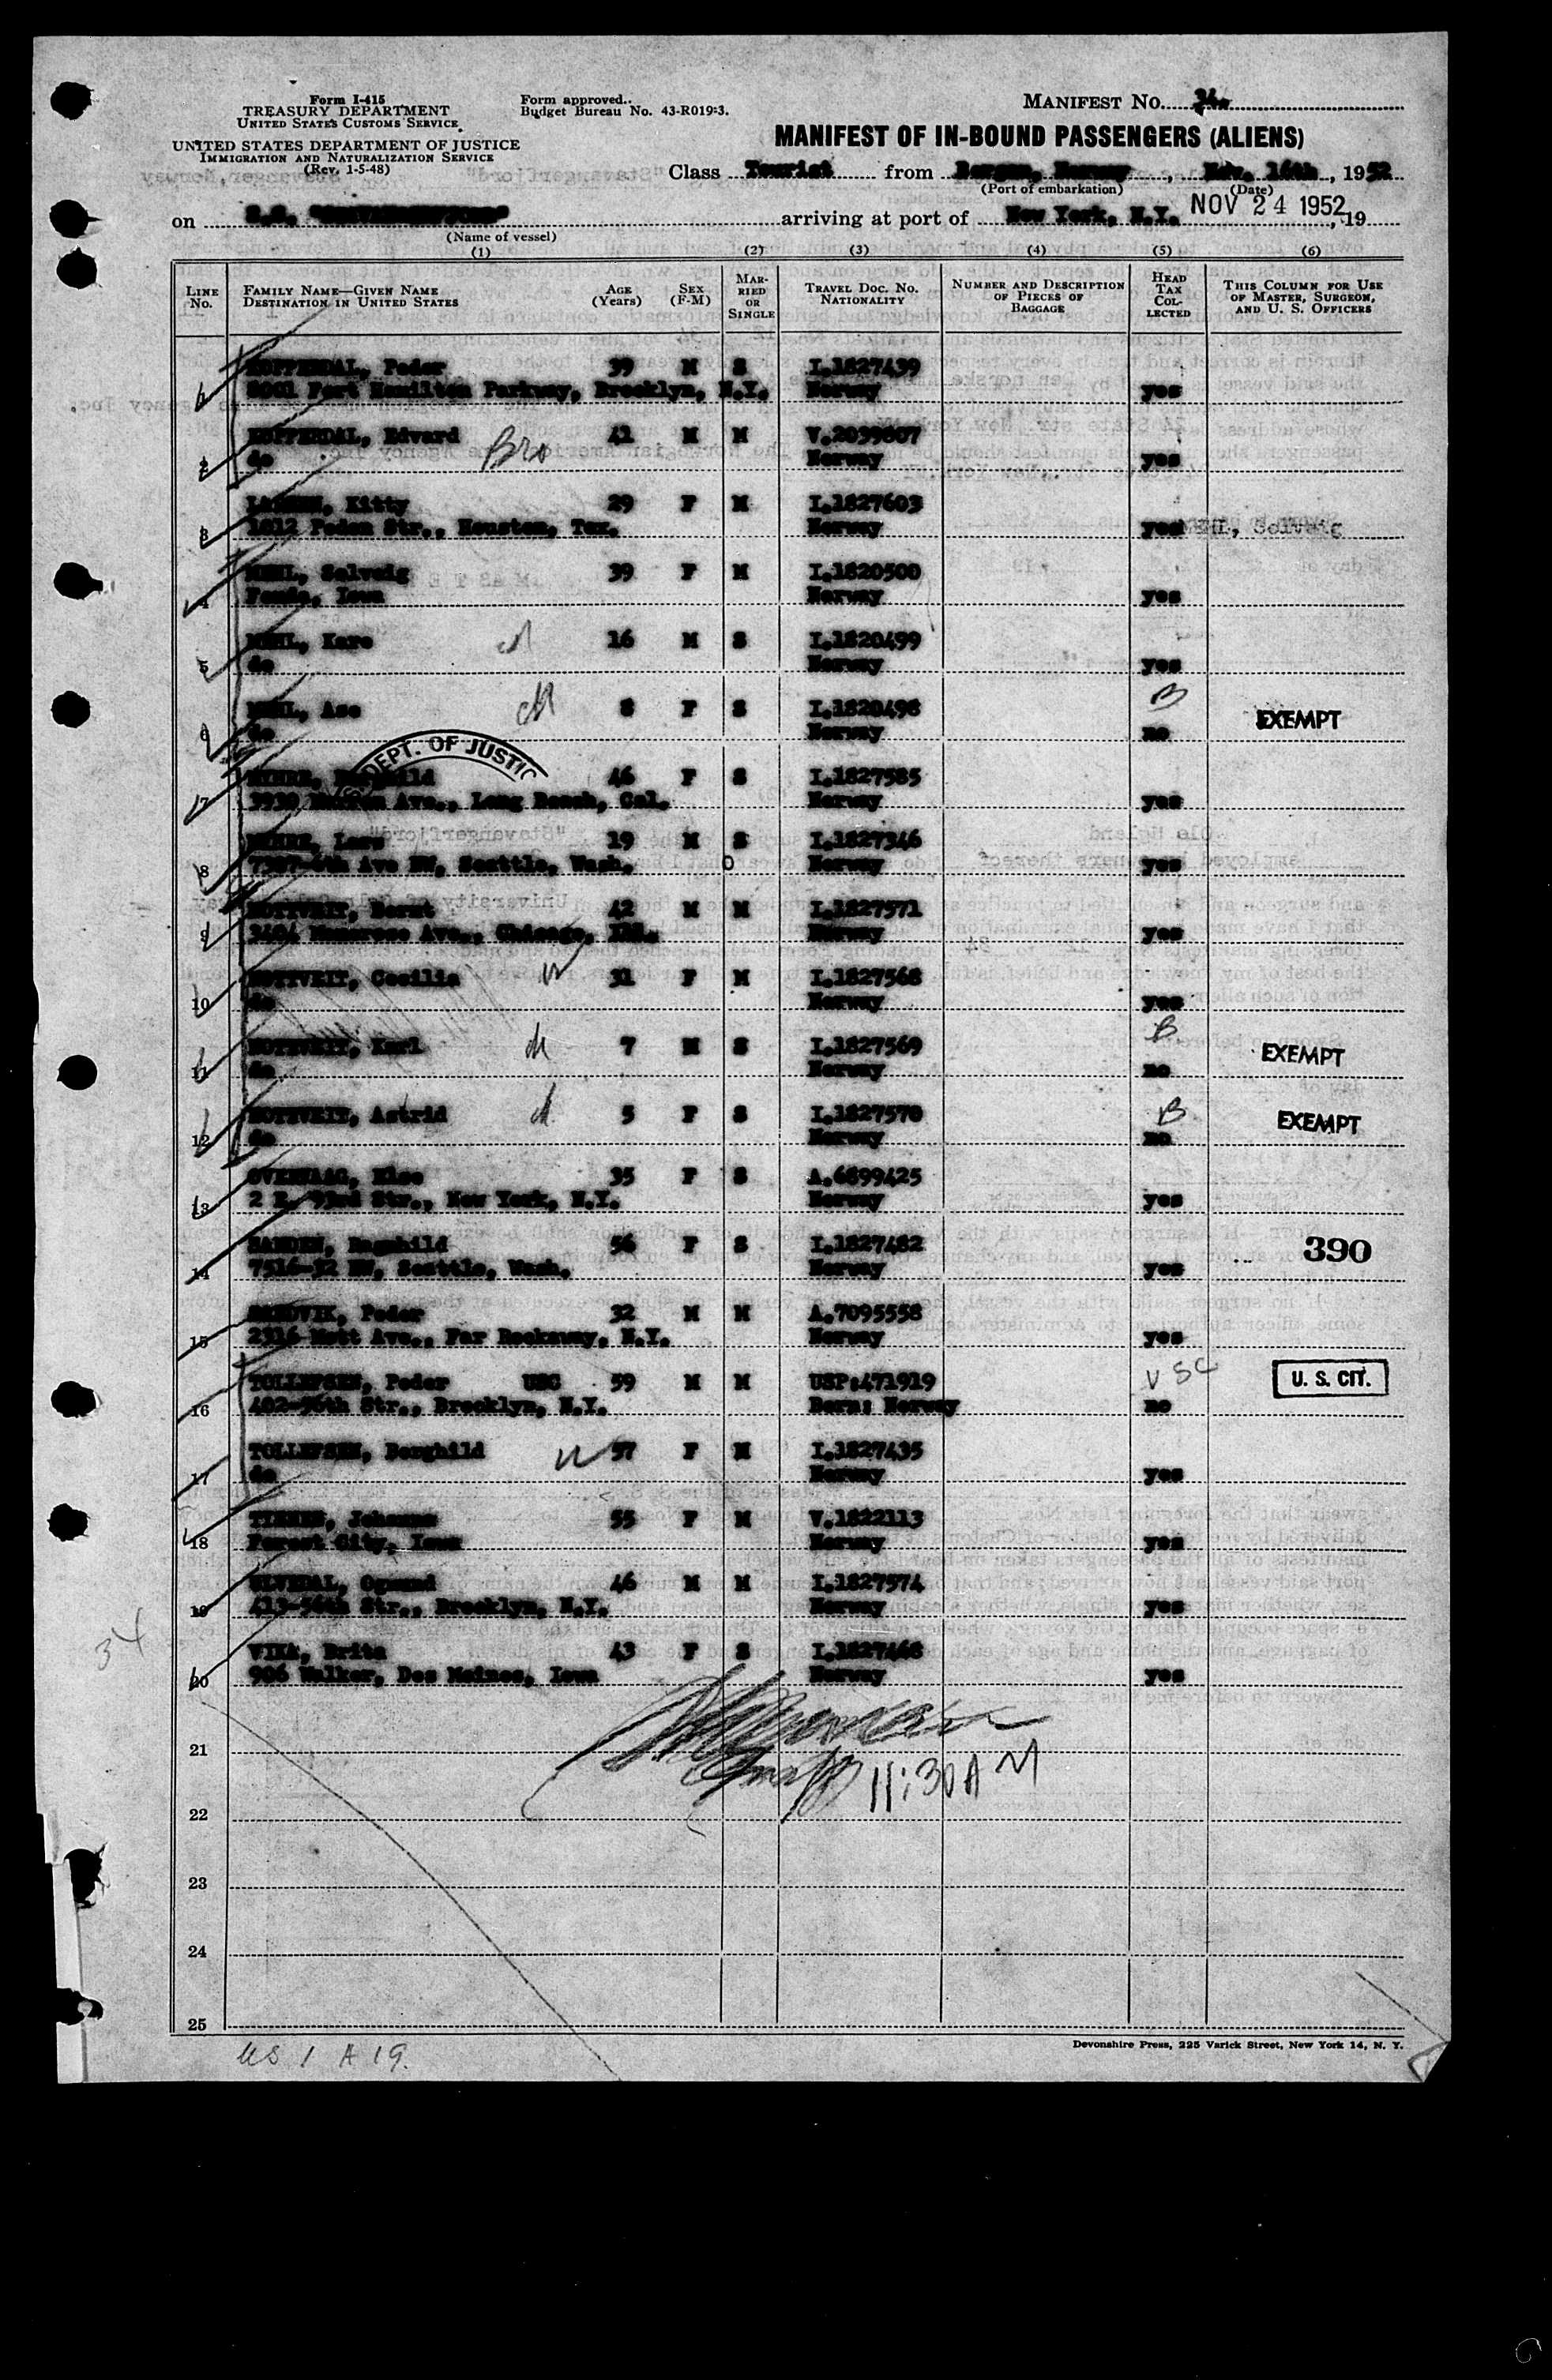 Form I-415
TREASURY DEPARTMENT
UNITED STATES CUSTOMS SERVICE
UNITED STATES DEPARTMENT OF JUSTICE
IMMIGRATION AND NATURALIZATION SERVICE
(Rev. 1-5-48)
Form approved.
Budget Bureau No. 43-R019:3.
MANIFEST No. 34
MANIFEST OF IN-BOUND PASSENGERS (ALIENS)
Class Tourist from Bergen, Norway, Nov. 16th, 1952
(Port of embarkation) (Date)
on S.S. arriving at port of New York, N.Y. NOV 24 1952, 19
(Name of vessel)
(1) (2) (3) (4) (5) (6)
LINE No. FAMILY NAME—GIVEN NAME DESTINATION IN UNITED STATES AGE (Years) SEX (F-M) MARRIED OR SINGLE TRAVEL DOC. NO. NATIONALITY NUMBER AND DESCRIPTION OF PIECES OF BAGGAGE HEAD TAX COLLECTED THIS COLUMN FOR USE OF MASTER, SURGEON, AND U. S. OFFICERS
1 Peder 39 M S I.1827439
8001 Fort Hamilton Parkway, Brooklyn, N.Y. Norway yes
2 Edvard Bro 41 M M V.2039807
do Norway yes
3 Kitty 29 F M I.1827603
1812 Peden Str., Houston, Tex. Norway yes
4 MEHL, Solveig 39 F M I.1820500
Fonda, Iowa Norway yes
5 MEHL, Kare 16 M S I.1820499
do Norway yes
6 MEHL, Ase 8 F S I.1820498 B EXEMPT
do Norway no
DEPT. OF JUSTIC
7 46 F S I.1827585
Ave., Long Beach, Cal. Norway yes
8 Lars 19 M S I.1827346
6th Ave NW, Seattle, Wash. Norway yes
9 Bernt 42 M M I.1827571
Ave., Chicago, Ill. Norway yes
10 Cecilie W 31 F M I.1827568
do Norway yes
11 Karl 7 M S I.1827569 B EXEMPT
do Norway no
12 Astrid 5 F S I.1827570 B EXEMPT
do Norway no
13 Else 35 F S A.6899425
2 E- 93nd Str., New York, N.Y. Norway yes
14 Ragnhild 56 F S I.1827482 390
7516-32 NW, Seattle, Wash. Norway yes
15 SANDVIK, Peder 32 M M A.7095558
2316 Mott Ave., Far Rockaway, N.Y. Norway yes
16 TOLLEFSEN, Peder USC 59 M M USP:471919 USC U. S. CIT.
402-56th Str., Brooklyn, N.Y. Born: Norway no
17 TOLLEFSEN, Borghild W 57 F M I.1827435
do Norway yes
18 Johanna 55 F M V.1822113
Forest City, Iowa Norway yes
19 Ogmund 46 M M I.1827574
413-56th Str., Brooklyn, N.Y. Norway yes
34
20 VIKA, Brita 43 F S I.1827468
906 Walker, Des Moines, Iowa Norway yes
21
11:30 AM
22
23
24
25
US 1 A 19.
Devonshire Press, 225 Varick Street, New York 14, N. Y.